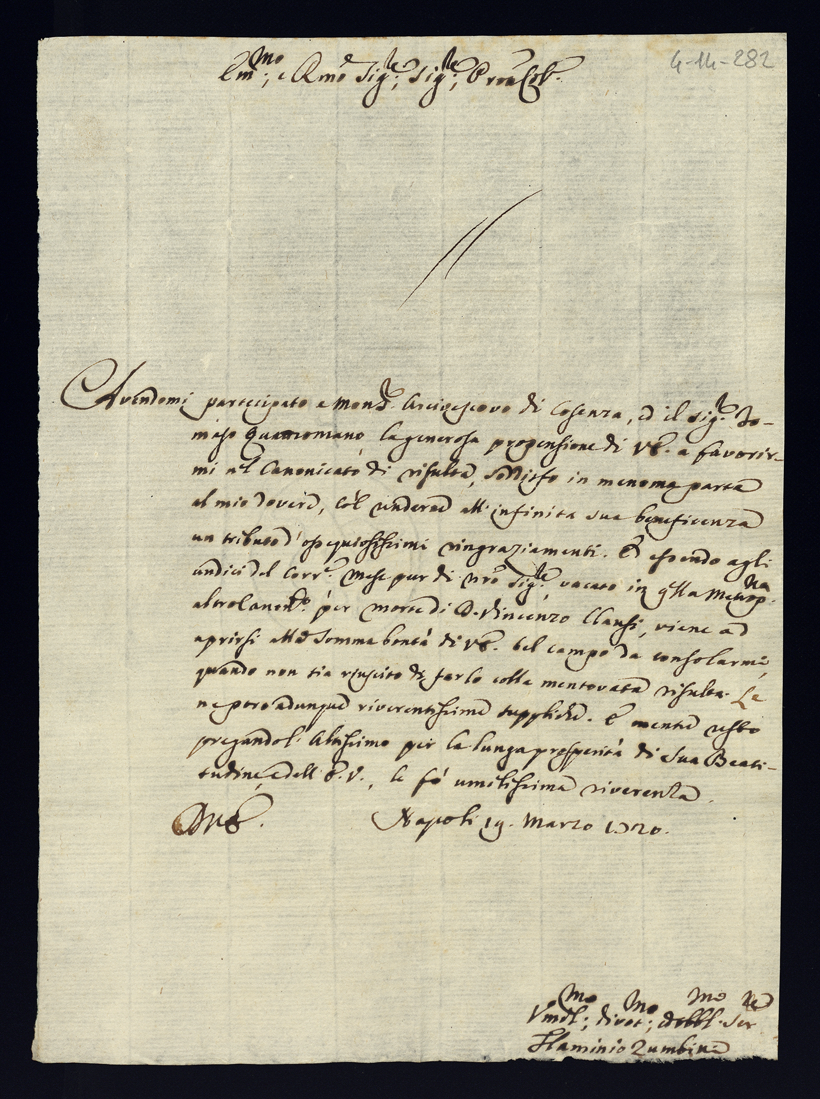 4-14-282
Em:mo, e Rmo Sig:re, Sig:re, P.ron Col.
Avendomi partecipato e Mons.r Arcivescovo di Cosenza, ed il Sig.r To-
maso Quattromano la generosa propensione di V.E. a favorir-
mi nel Canonicato di risulta, sodisfo in menoma parte
al mio dovere, col rendere all'infinita sua beneficenza
un tributo d'ossequiosissimi ringraziamenti. Ed essendo agli
undici del corr.e mese pur di nro Sig.re, vacato in q.lla Metrop.na
altro Canon.to per morte di D. Vincenzo Clausi, viene ad
aprirsi alla somma bontà di V.E. bel campo da consolarmi,
quando non sia riuscito di farlo colla mentovata risulta. Le
ne porgo adunque riverentissime suppliche. E mentre resto
pregando l'Altissimo per la lunga prosperità di Sua Beati-
tudine, e dell'E.V., le fò umilissima riverenza.
D.V.E. Napoli 19. Marzo 1720.
Vmil:mo, divot:mo, ed obbl:mo Ser.re
Flaminio Zumbini